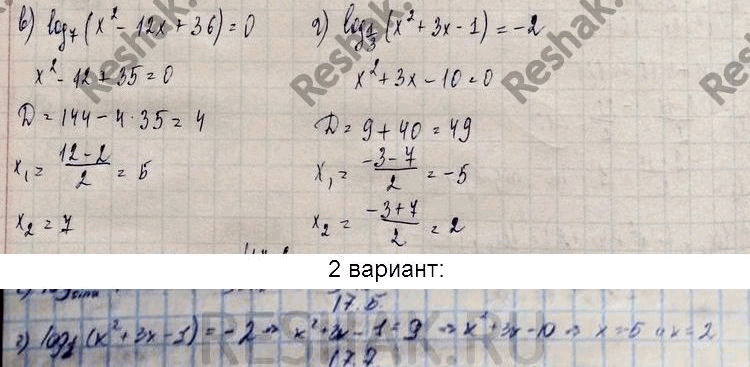 в) log₇(x² - 12x + 36) = 0
x² - 12 + 35 = 0
D = 144 - 4·35 = 4
x₁ = (12 - 2)/2 = 5
x₂ = 7
г) log₁/₃(x² + 3x - 1) = -2
x² + 3x - 10 = 0
D = 9 + 40 = 49
x₁ = (-3 - 7)/2 = -5
x₂ = (-3 + 7)/2 = 2
Reshak.ru
2 вариант:
17.5
г) log₁/₃(x² + 3x - 1) = -2 ⇒ x² + 3x - 1 = 9 ⇒ x² + 3x - 10 ⇒ x = -5 и x = 2
RESHAK.RU
17.7